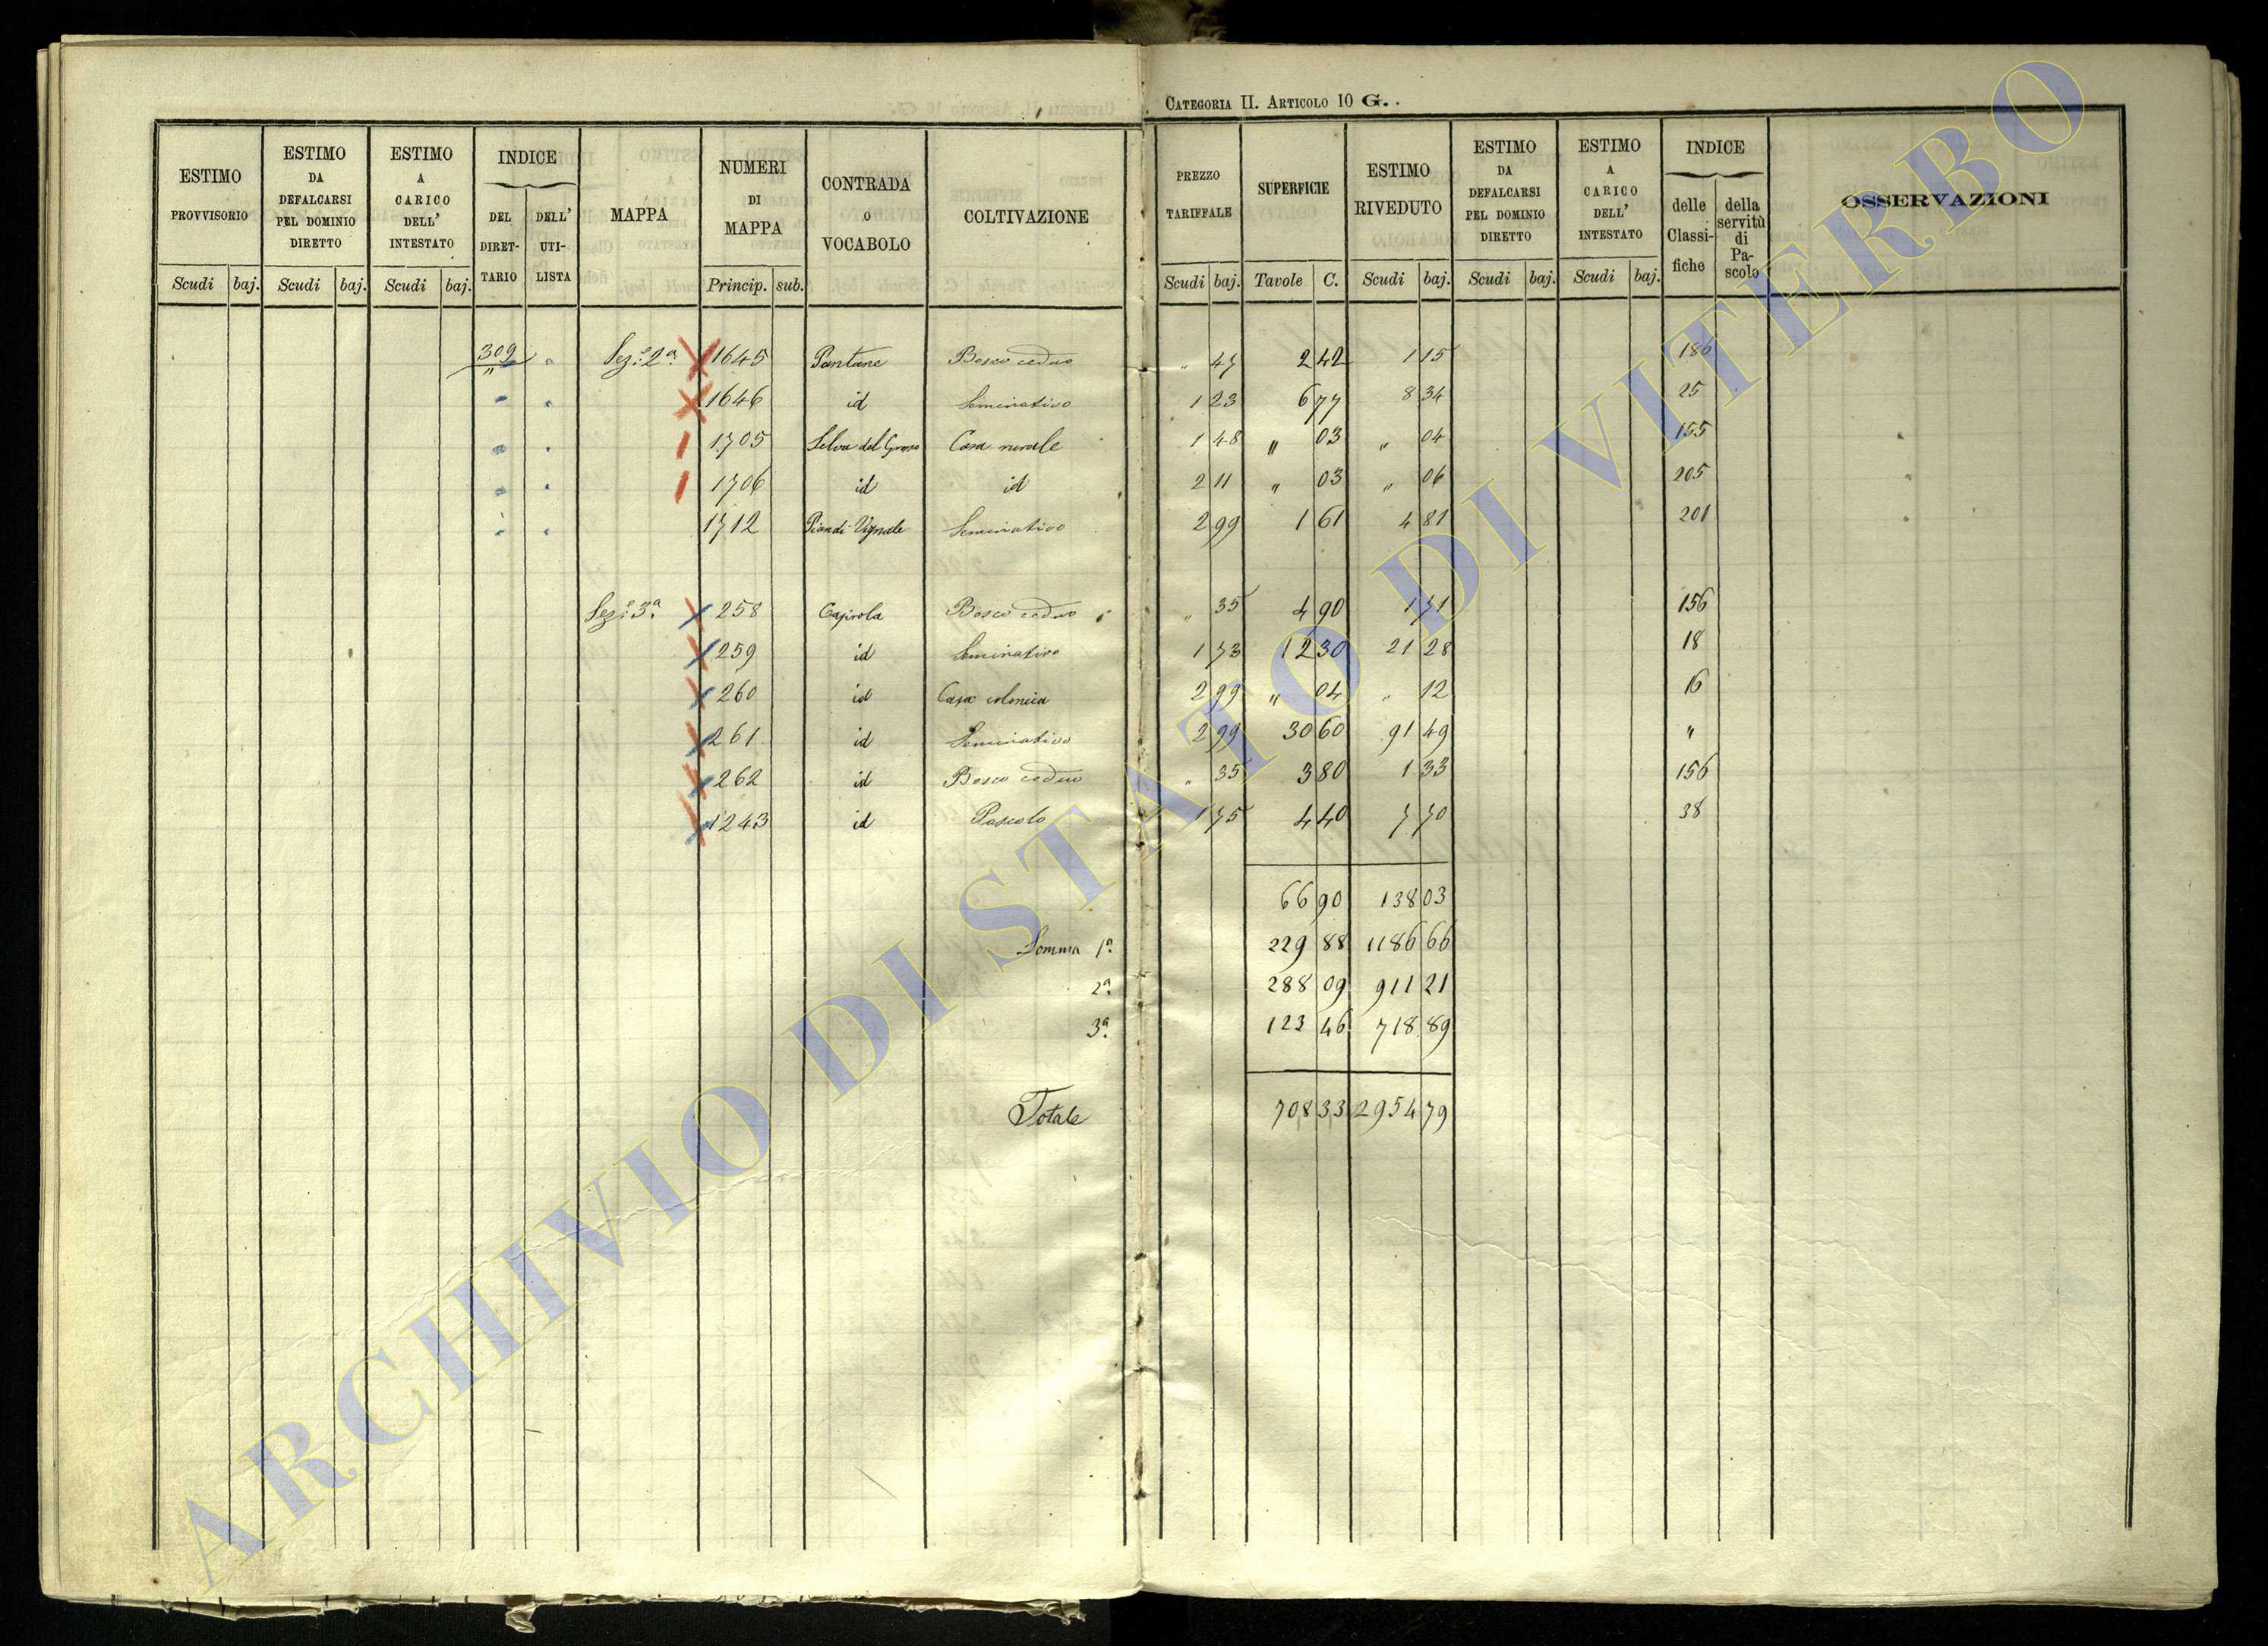 CATEGORIA II. ARTICOLO 10 G.
ESTIMO PROVVISORIO Scudi baj.
ESTIMO DA DEFALCARSI PEL DOMINIO DIRETTO Scudi baj.
ESTIMO A CARICO DELL' INTESTATO Scudi baj.
INDICE DEL DIRETTARIO DELL' UTILISTA
MAPPA
NUMERI DI MAPPA Princip. sub.
CONTRADA o VOCABOLO
COLTIVAZIONE
PREZZO TARIFFALE Scudi baj.
SUPERFICIE Tavole C.
ESTIMO RIVEDUTO Scudi baj.
ESTIMO DA DEFALCARSI PEL DOMINIO DIRETTO Scudi baj.
ESTIMO A CARICO DELL' INTESTATO Scudi baj.
INDICE delle Classifiche della servitù di Pascolo
OSSERVAZIONI
309 " Sez.e 2a 1645 Pantane Bosco ceduo " 47 2 42 1 15 186
" " 1646 id Seminativo 1 23 6 77 8 34 25
" " 1705 Selva del Grosso Casa rurale 1 48 " 03 " 04 155
" " 1706 id id 2 11 " 03 " 06 205
" " 1712 Pian di Vignale Seminativo 2 99 1 61 4 81 201
Sez.e 3a 258 Capirola Bosco ceduo " 35 4 90 1 71 156
259 id Seminativo 1 73 12 30 21 28 18
260 id Casa colonica 2 99 " 04 " 12 16
261 id Seminativo 2 99 30 60 91 49 "
262 id Bosco ceduo " 35 3 80 1 33 156
1243 id Pascolo 1 75 4 40 7 70 38
66 90 138 03
Somma 1a 229 88 1186 66
2a 288 09 911 21
3a 123 46 718 89
Totale 708 33 2954 79
ARCHIVIO DI STATO DI VITERBO